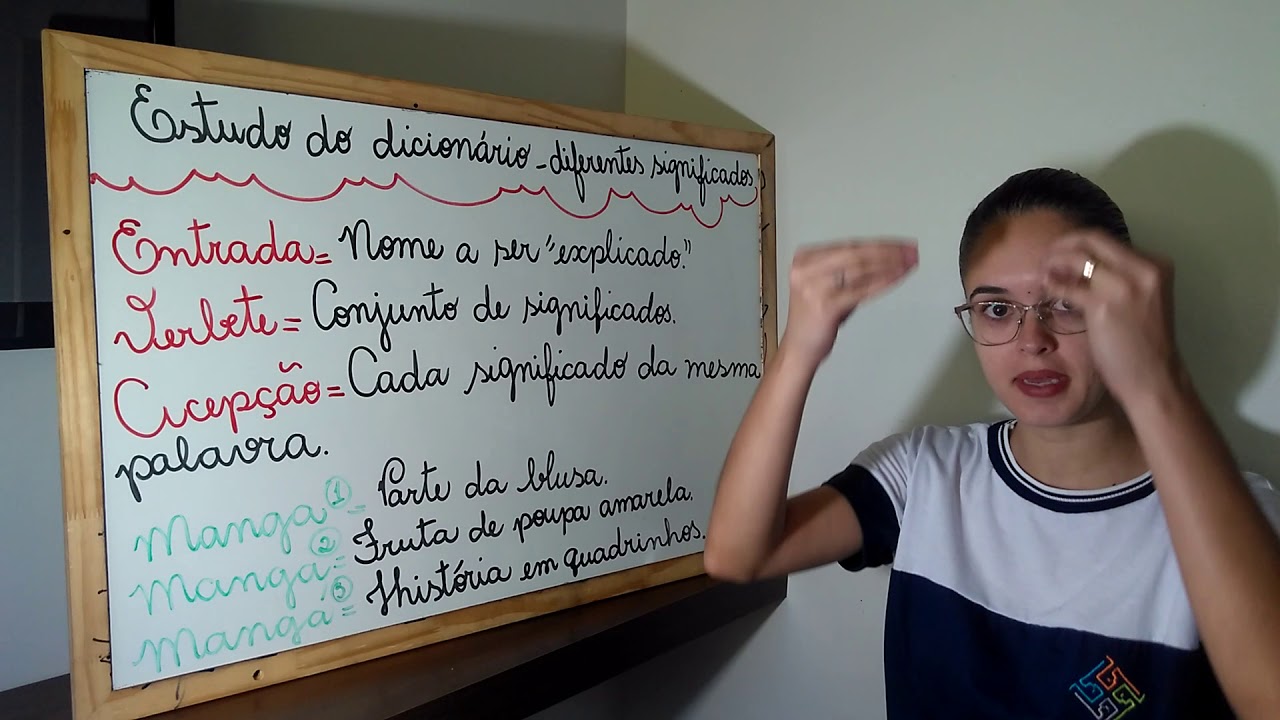 Estudo do dicionário - diferentes significados
Entrada = Nome a ser "explicado."
Verbete = Conjunto de significados.
Acepção = Cada significado da mesma
palavra.
Manga ① = Parte da blusa.
Manga ② = Fruta de poupa amarela.
Mangá ③ = História em quadrinhos.